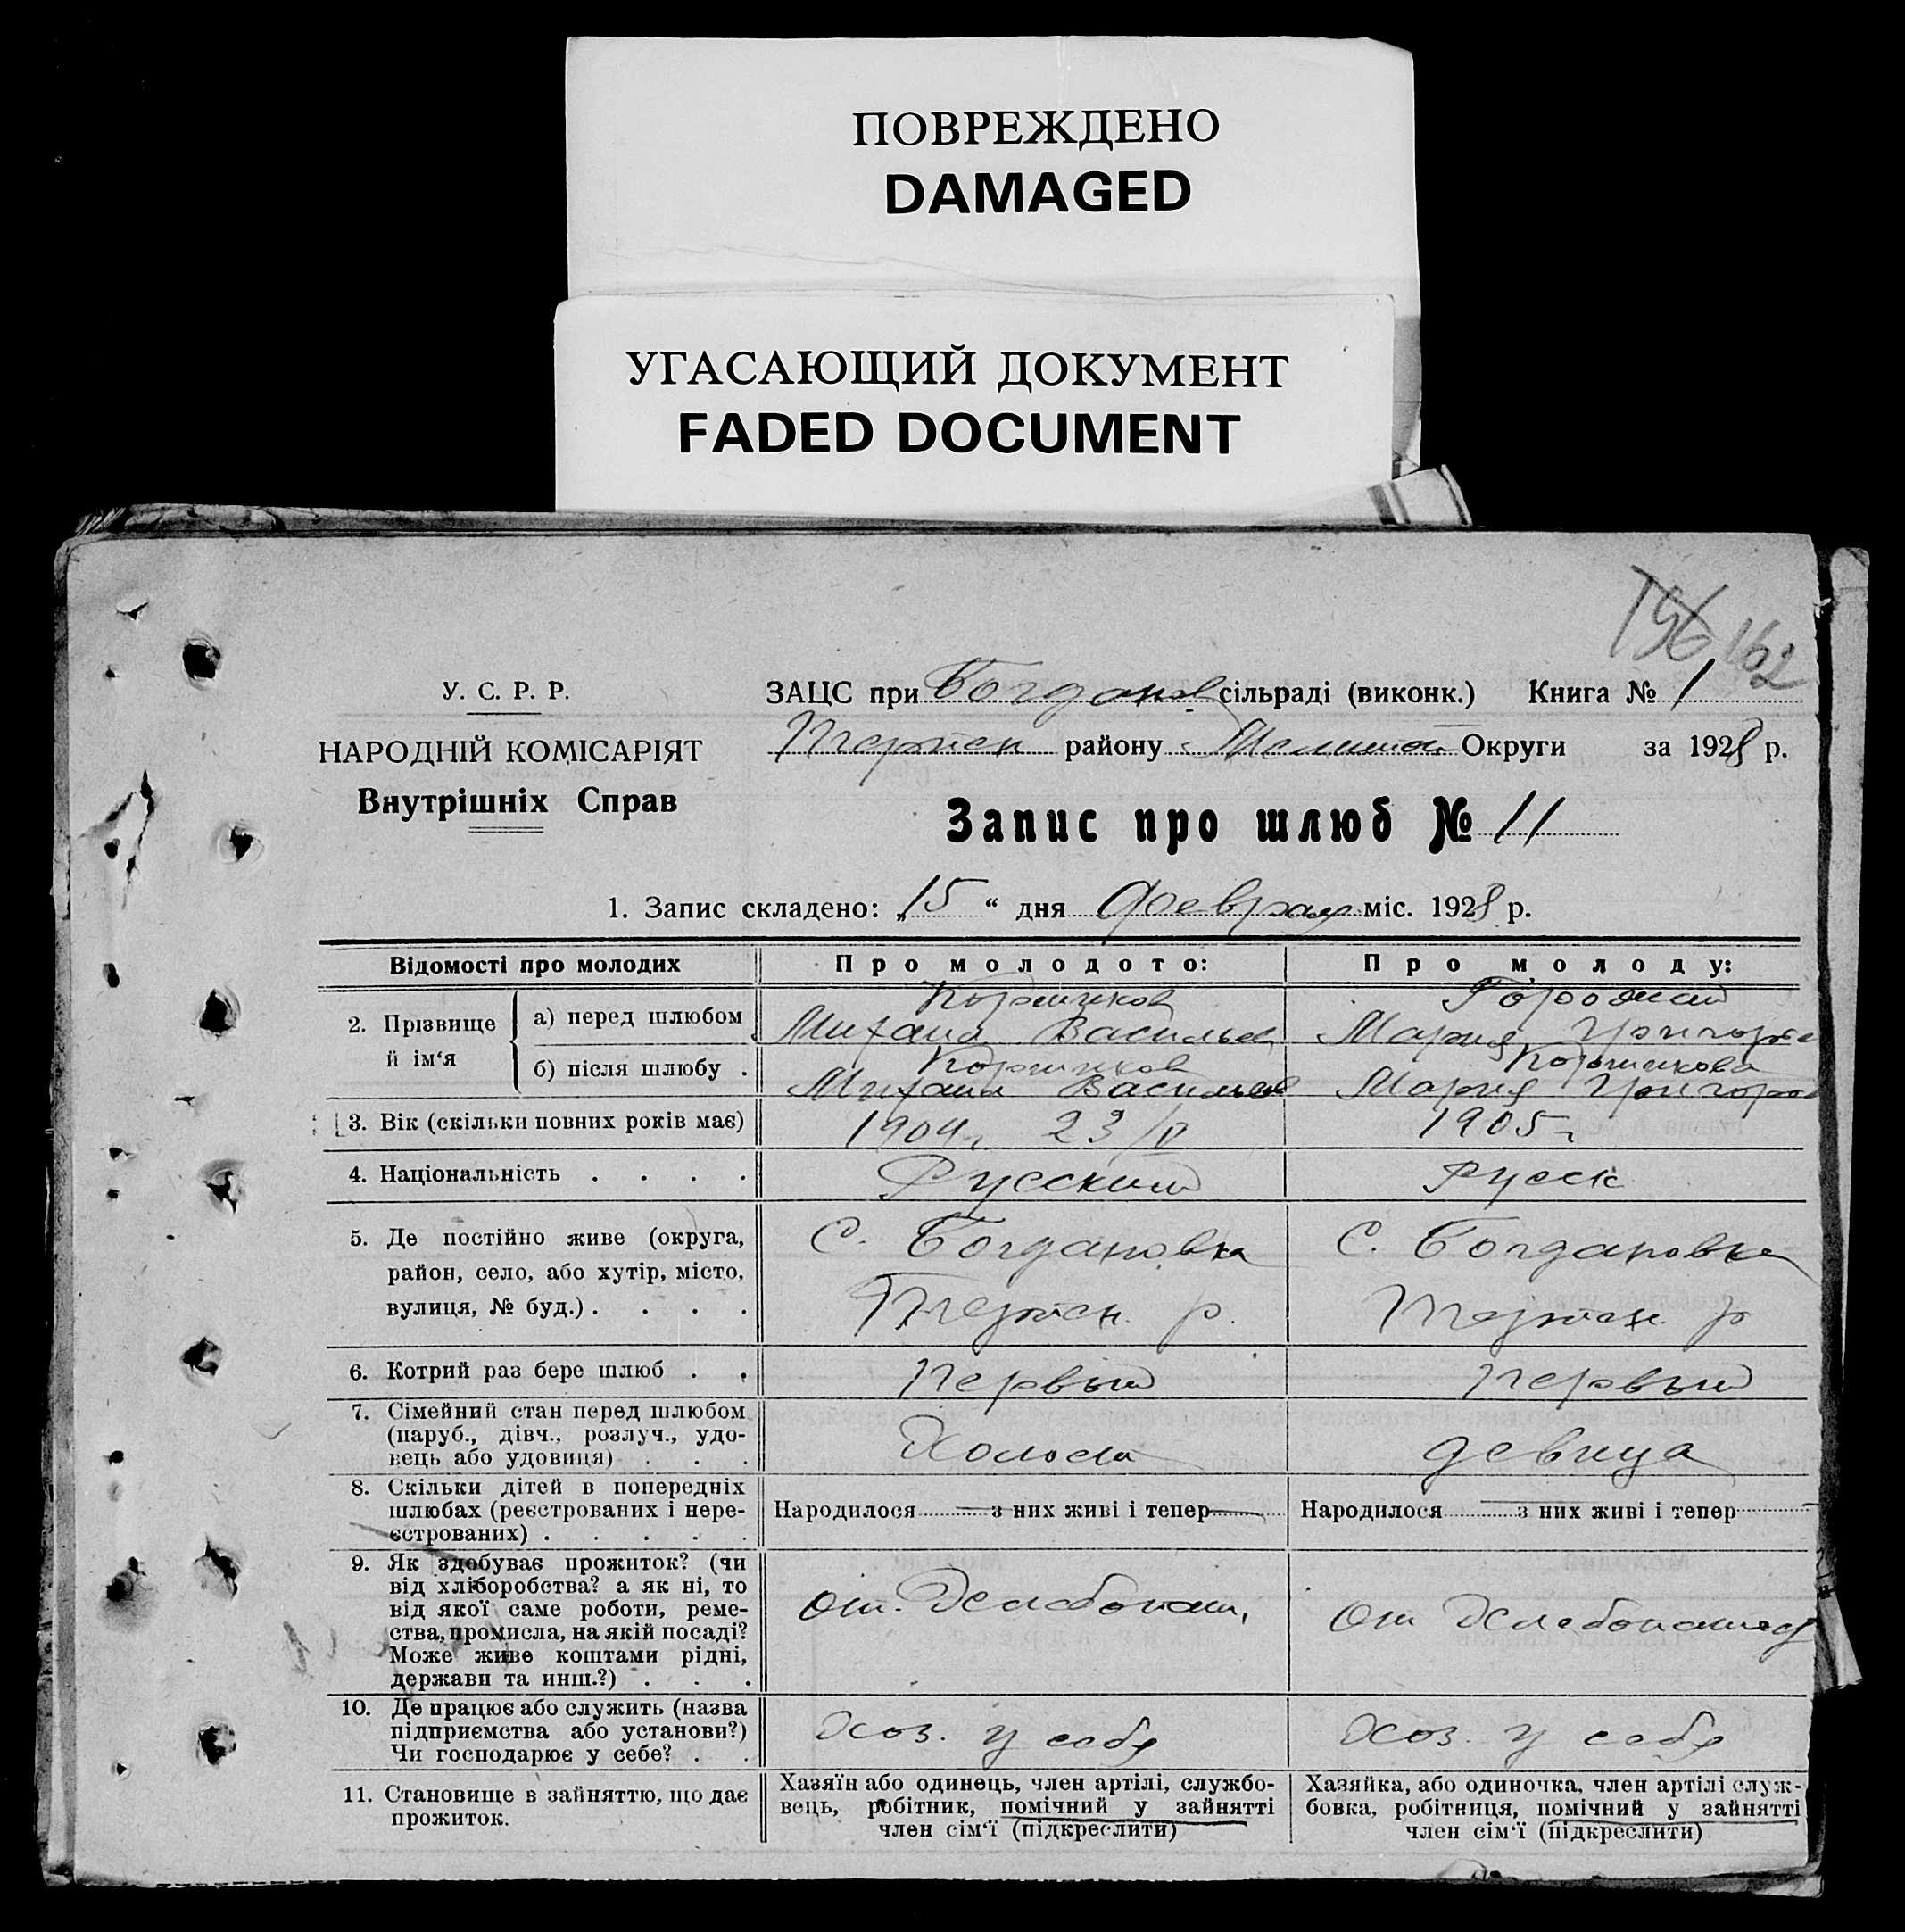 ПОВРЕЖДЕНО
DAMAGED
УГАСАЮЩИЙ ДОКУМЕНТ
FADED DOCUMENT
156 162
У. С. Р. Р.
НАРОДНІЙ КОМІСАРІЯТ
Внутрішніх Справ
ЗАЦС при Богданов сільраді (виконк.) Книга № 1
району Округи за 1928 р.
Запис про шлюб № 11
1. Запис складено: „15“ дня Февраля міс. 1928 р.
Відомості про молодих Про молодого: Про молоду:
2. Прізвище й ім‘я
а) перед шлюбом
Михаил Васильев Мария
б) після шлюбу .
Михаил Васильев Мария
3. Вік (скільки повних років має) 1904 г. 23 1905 г.
4. Національність . . . . Русский Русск
5. Де постійно живе (округа, С. Богдановка С. Богдановка
район, село, або хутір, місто,
вулиця, № буд.) . . . . р. р
6. Котрий раз бере шлюб . . Первый Первый
7. Сімейний стан перед шлюбом
(паруб., дівч., розлуч., удо- Холост девица
вець або удовиця) . . .
8. Скільки дітей в попередніх
шлюбах (реєстрованих і нере- Народилося з них живі і тепер Народилося з них живі і тепер
єстрованих) . . . . .
9. Як здобуває прожиток? (чи
від хліборобства? а як ні, то
від якої саме роботи, реме- От. Хлебопаш. От Хлебопашес
ства, промисла, на якій посаді?
Може живе коштами рідні,
держави та инш.?) . . .
10. Де працює або служить (назва
підприємства або установи?) Хоз. у себя Хоз. у себя
Чи господарює у себе? . .
11. Становище в зайняттю, що дає
прожиток.
Хазяїн або одинець, член артілі, службо-
вець, робітник, помічний у зайнятті
член сім‘ї (підкреслити)
Хазяйка, або одиночка, член артілі служ-
бовка, робітниця, помічний у зайнятті
член сім‘ї (підкреслити)